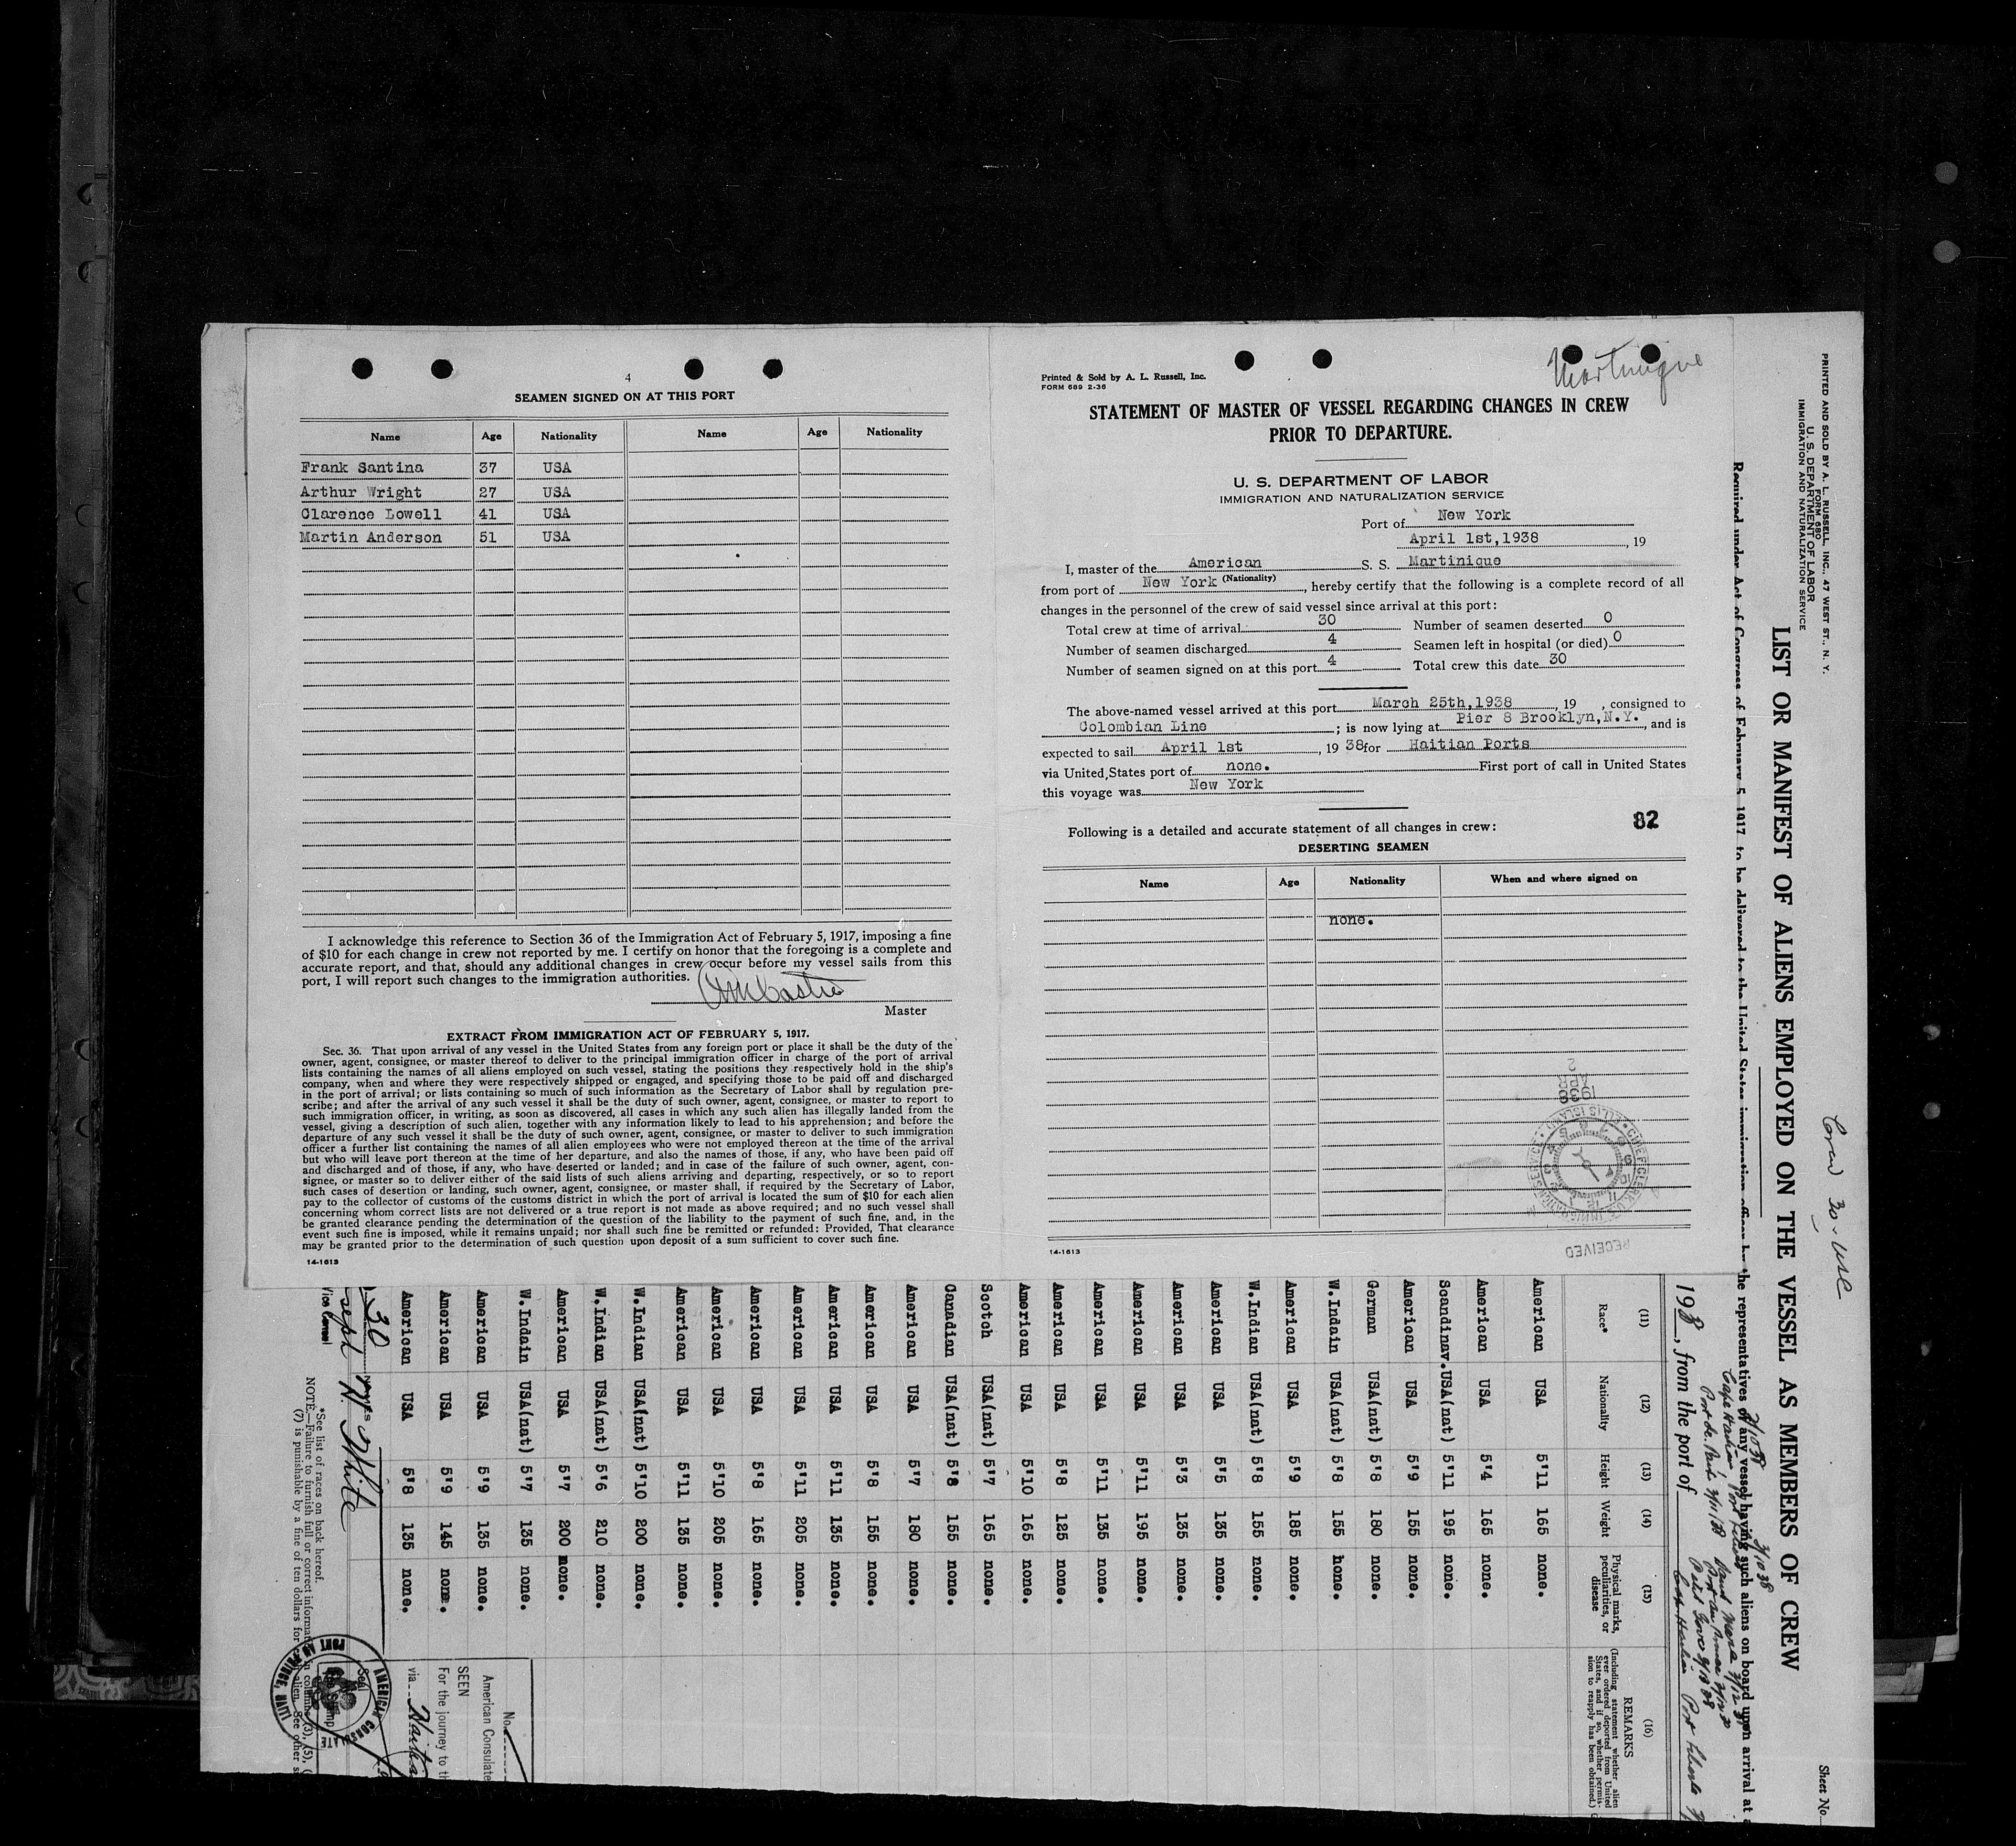 4
SEAMEN SIGNED ON AT THIS PORT
Name Age Nationality Name Age Nationality
Frank Santina 37 USA
Arthur Wright 27 USA
Clarence Lowell 41 USA
Martin Anderson 51 USA
I acknowledge this reference to Section 36 of the Immigration Act of February 5, 1917, imposing a fine
of $10 for each change in crew not reported by me. I certify on honor that the foregoing is a complete and
accurate report, and that, should any additional changes in crew occur before my vessel sails from this
port, I will report such changes to the immigration authorities.
Master
EXTRACT FROM IMMIGRATION ACT OF FEBRUARY 5, 1917.
Sec. 36. That upon arrival of any vessel in the United States from any foreign port or place it shall be the duty of the
owner, agent, consignee, or master thereof to deliver to the principal immigration officer in charge of the port of arrival
lists containing the names of all aliens employed on such vessel, stating the positions they respectively hold in the ship's
company, when and where they were respectively shipped or engaged, and specifying those to be paid off and discharged
in the port of arrival; or lists containing so much of such information as the Secretary of Labor shall by regulation pre-
scribe; and after the arrival of any such vessel it shall be the duty of such owner, agent, consignee, or master to report to
such immigration officer, in writing, as soon as discovered, all cases in which any such alien has illegally landed from the
vessel, giving a description of such alien, together with any information likely to lead to his apprehension; and before the
departure of any such vessel it shall be the duty of such owner, agent, consignee, or master to deliver to such immigration
officer a further list containing the names of all alien employees who were not employed thereon at the time of the arrival
but who will leave port thereon at the time of her departure, and also the names of those, if any, who have been paid off
and discharged and of those, if any, who have deserted or landed; and in case of the failure of such owner, agent, con-
signee, or master so to deliver either of the said lists of such aliens arriving and departing, respectively, or so to report
such cases of desertion or landing, such owner, agent, consignee, or master shall, if required by the Secretary of Labor,
pay to the collector of customs of the customs district in which the port of arrival is located the sum of $10 for each alien
concerning whom correct lists are not delivered or a true report is not made as above required; and no such vessel shall
be granted clearance pending the determination of the question of the liability to the payment of such fine, and, in the
event such fine is imposed, while it remains unpaid; nor shall such fine be remitted or refunded: Provided, That clearance
may be granted prior to the determination of such question upon deposit of a sum sufficient to cover such fine.
14-1613
Martinique
Printed & Sold by A. L. Russell, Inc.
FORM 689 2-36
STATEMENT OF MASTER OF VESSEL REGARDING CHANGES IN CREW
PRIOR TO DEPARTURE.
U. S. DEPARTMENT OF LABOR
IMMIGRATION AND NATURALIZATION SERVICE
Port of New York
April 1st,1938, 19
I, master of the American S. S. Martinique
(Nationality)
from port of New York, hereby certify that the following is a complete record of all
changes in the personnel of the crew of said vessel since arrival at this port:
Total crew at time of arrival 30 Number of seamen deserted 0
Number of seamen discharged 4 Seamen left in hospital (or died) 0
Number of seamen signed on at this port 4 Total crew this date 30
The above-named vessel arrived at this port March 25th,1938, 19 , consigned to
Colombian Line; is now lying at Pier 8 Brooklyn,N.Y., and is
expected to sail April 1st, 19 38 for Haitian Ports
via United States port of none. First port of call in United States
this voyage was New York
82
Following is a detailed and accurate statement of all changes in crew:
DESERTING SEAMEN
Name Age Nationality When and where signed on
none.
14-1613
RECEIVED
1938
PRINTED AND SOLD BY A. L. RUSSELL, INC., 47 WEST ST., N. Y.
FORM 680
U. S. DEPARTMENT OF LABOR
IMMIGRATION AND NATURALIZATION SERVICE
Sheet No.
LIST OR MANIFEST OF ALIENS EMPLOYED ON THE VESSEL AS MEMBERS OF CREW
Required under Act of Congress of February 5, 1917, to be delivered to the United States immigration officer by the representatives of any vessel having such aliens on board upon arrival at
1938, from the port of
(11) (12) (13) (14) (15) (16)
Race* Nationality Height Weight Physical marks, peculiarities, or disease REMARKS
(Including statement whether alien ever ordered deported from United States, and if so, whether permission to reapply has been obtained.)
American USA 5'11 165 none.
American USA 5'4 165 none.
Scandinav. USA(nat) 5'11 195 none.
American USA 5'9 155 none.
German USA(nat) 5'8 180 none.
W.Indain USA(nat) 5'8 155 none.
American USA 5'9 185 none.
W.Indian USA(nat) 5'8 155 none.
American USA 5'5 135 none.
American USA 5'3 135 none.
American USA 5'11 195 none.
American USA 5'11 135 none.
American USA 5'8 125 none.
American USA 5'10 165 none.
Scotch USA(nat) 5'7 165 none.
Canadian USA(nat) 5'8 155 none.
American USA 5'7 180 none.
American USA 5'8 155 none.
American USA 5'11 135 none.
American USA 5'11 205 none.
American USA 5'8 165 none.
American USA 5'10 205 none.
American USA 5'11 135 none.
W.Indian USA(nat) 5'10 200 none.
W.Indian USA(nat) 5'6 210 none.
American USA 5'7 200 none.
W.Indain USA(nat) 5'7 135 none.
American USA 5'9 135 none.
American USA 5'9 145 none.
American USA 5'8 135 none.
30
White
Vice Consul
*See list of races on back hereof.
NOTE.—Failure to furnish full or correct information in columns (3), (5),
(7) is punishable by a fine of ten dollars for alien. See other
No.
American Consulate
SEEN
For the journey to th
via
AMERICAN CONSULATE
PORT AU PRINCE, HAITI